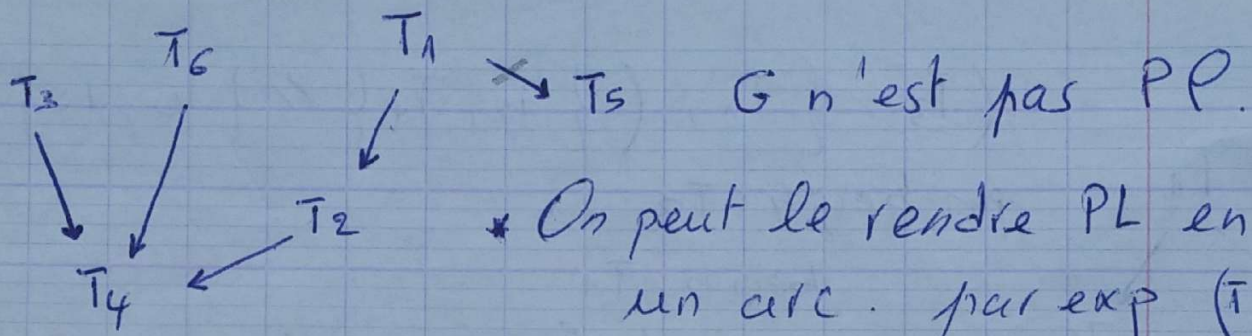 T1
T6
T3
T5 G n'est pas PP.
T2 * On peut le rendre PL en
T4 un arc. par exp (T